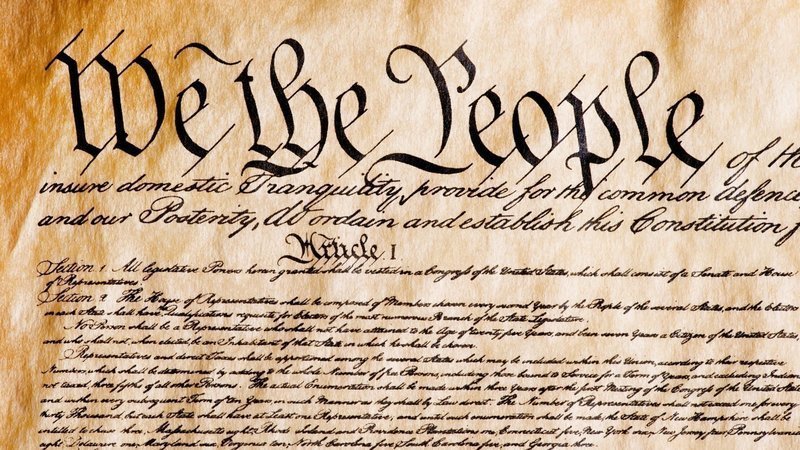 We the People of the
insure domestic Tranquility, provide for the common defence
and our Posterity, do ordain and establish this Constitution f
Article I
Section 1. All legislative Powers herein granted shall be vested in a Congress of the United States, which shall consist of a Senate and House
of Representatives.
Section 2. The House of Representatives shall be composed of Members chosen every second Year by the People of the several States, and the Electors
in each State shall have Qualifications requisite for Electors of the most numerous Branch of the State Legislature.
No Person shall be a Representative who shall not have attained to the Age of twenty five Years, and been seven Years a Citizen of the United States,
and who shall not, when elected, be an Inhabitant of that State in which he shall be chosen.
Representatives and direct Taxes shall be apportioned among the several States which may be included within this Union, according to their respective
Numbers, which shall be determined by adding to the whole Number of free Persons, including those bound to Service for a Term of Years, and excluding Indians
not taxed, three fifths of all other Persons. The actual Enumeration shall be made within three Years after the first Meeting of the Congress of the United States
and within every subsequent Term of ten Years, in such Manner as they shall by Law direct. The Number of Representatives shall not exceed one for every
thirty Thousand, but each State shall have at Least one Representative; and until such enumeration shall be made, the State of New Hampshire shall be
entitled to chuse three, Massachusetts eight, Rhode Island and Providence Plantations one, Connecticut five, New York six, New Jersey four, Pennsylvania
eight, Delaware one, Maryland six, Virginia ten, North Carolina five, South Carolina five, and Georgia three.